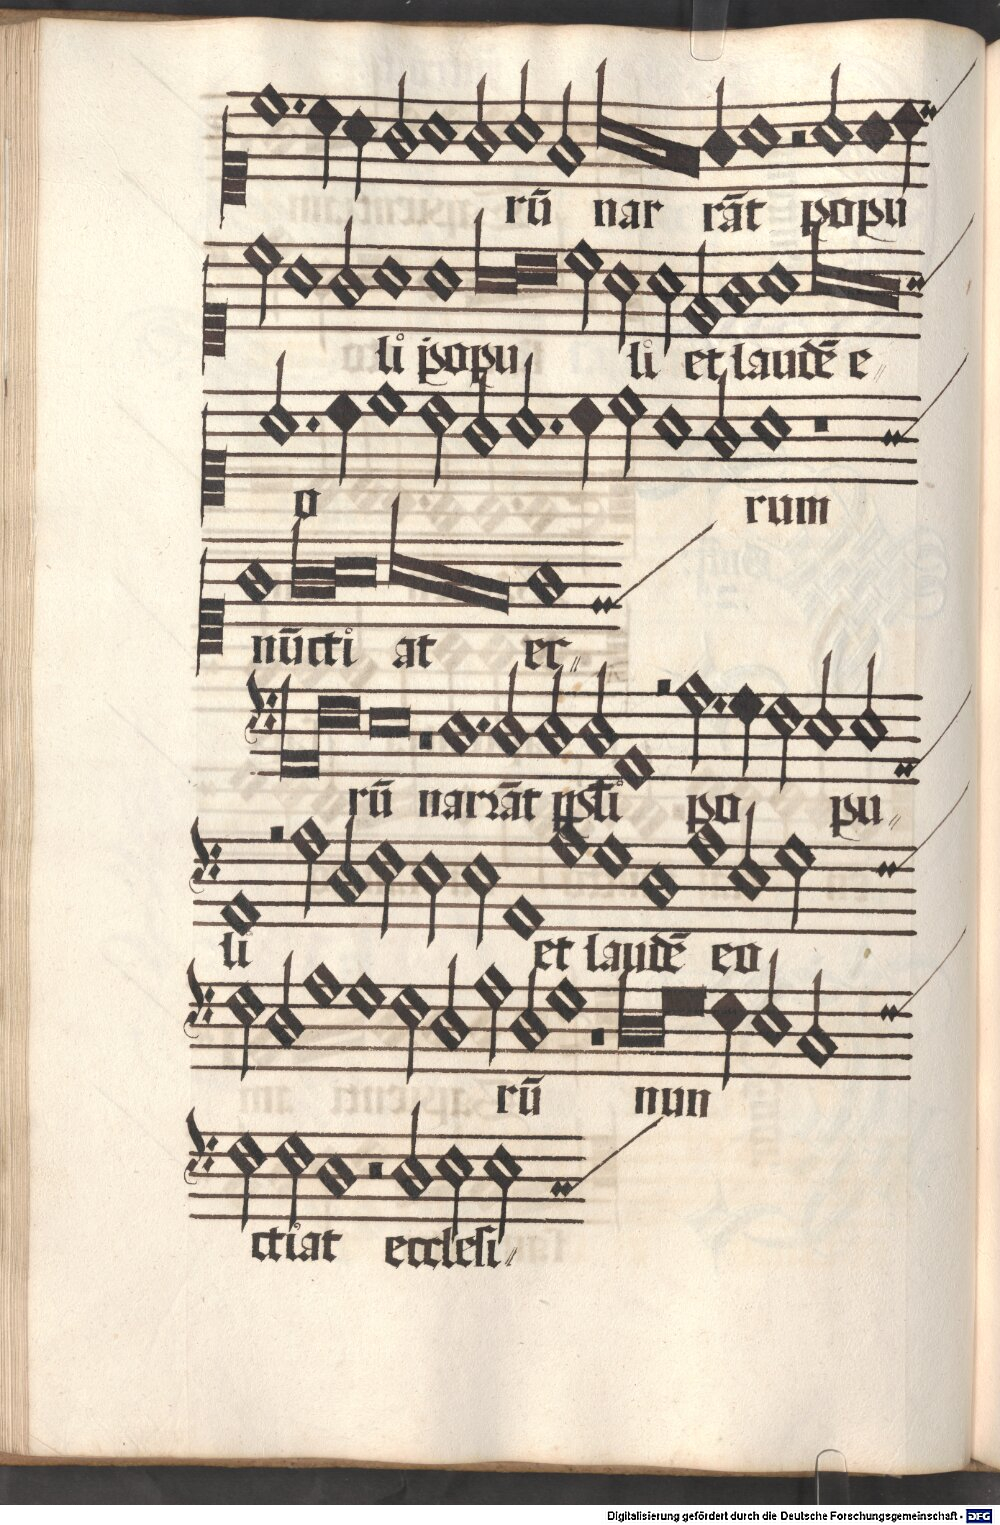 rū nar rāt popu
li popu li et laudē e〃
o rum
nūcti at ec〃
rū narrāt ppl̄i po pu〃
li et laudē eo
rū nun
ctiat ecclesi〃
Digitalisierung gefördert durch die Deutsche Forschungsgemeinschaft - DFG